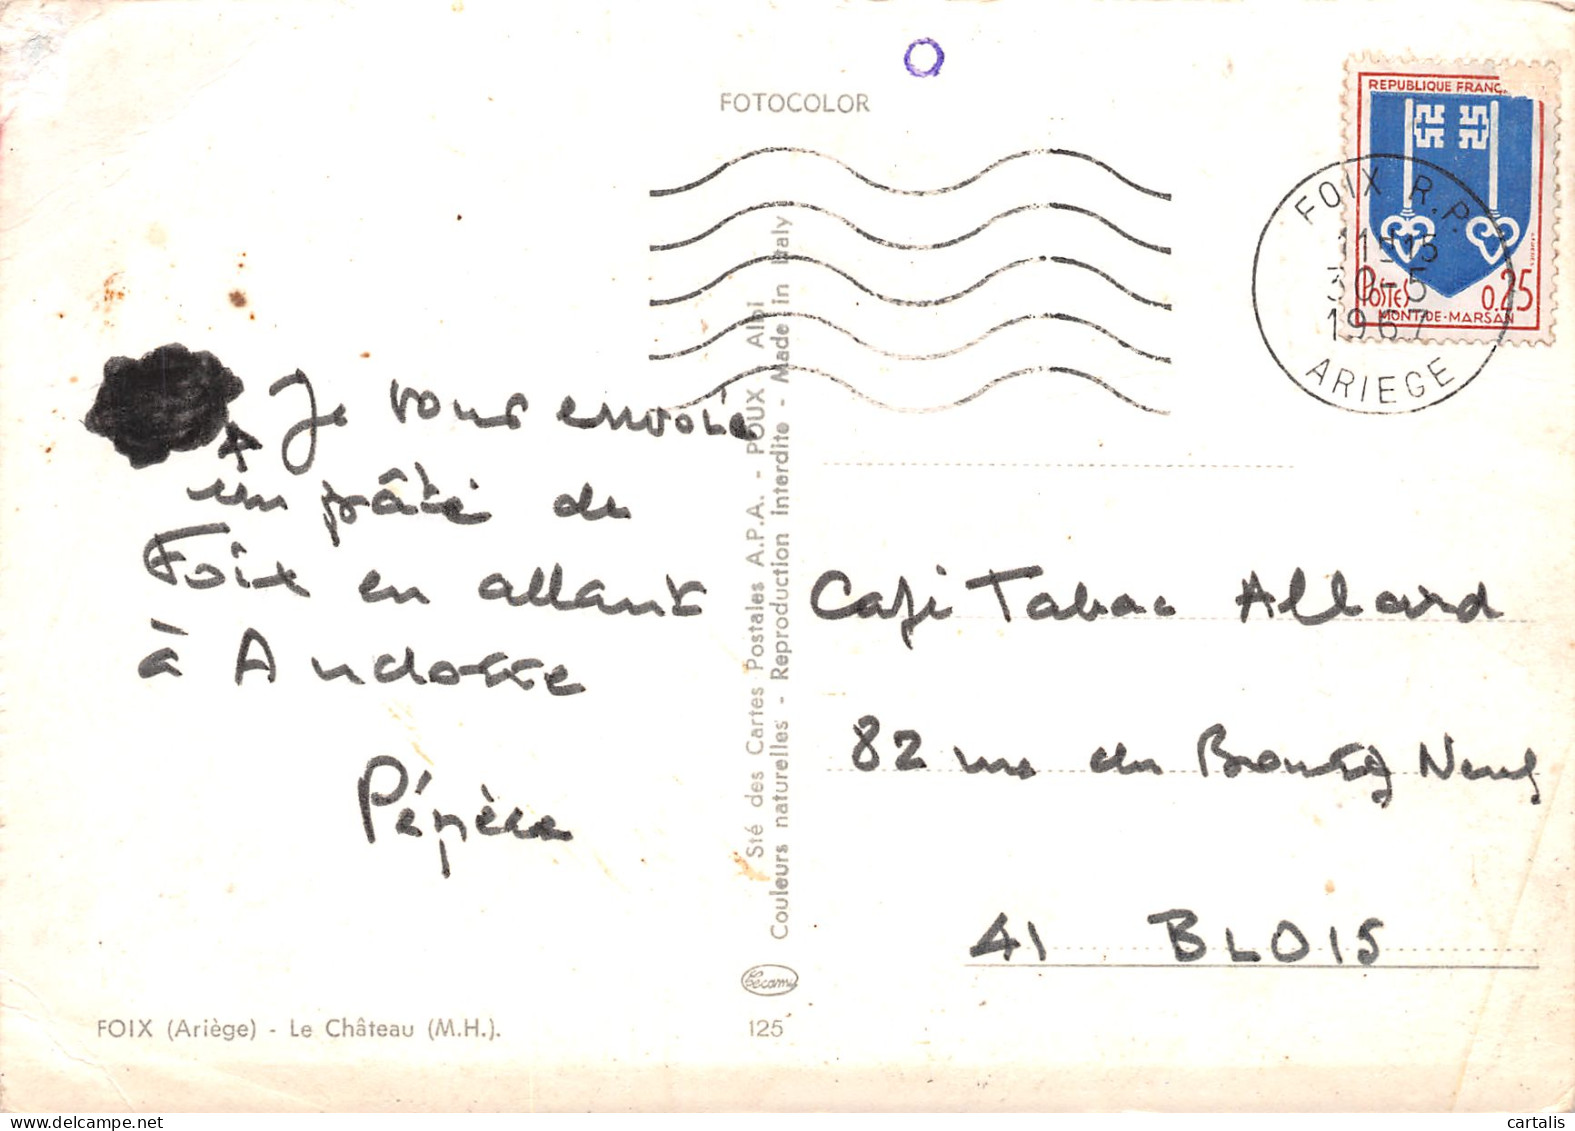 FOTOCOLOR
REPUBLIQUE FRANÇ
FOIX R.P.
11H15
30-5
1967
ARIEGE
POSTES 0.25
MONT-DE-MARSAN
Je vous envoie
un pâté de
Foix en allant
à Andorre
Pépère
Sté des Cartes Postales A.P.A. - POUX Albi
Couleurs naturelles - Reproduction interdite - Made in Italy
Café Tabac Allard
82 rue du Bourg Neuf
41 BLOIS
FOIX (Ariège) - Le Château (M.H.).
125
cartalis